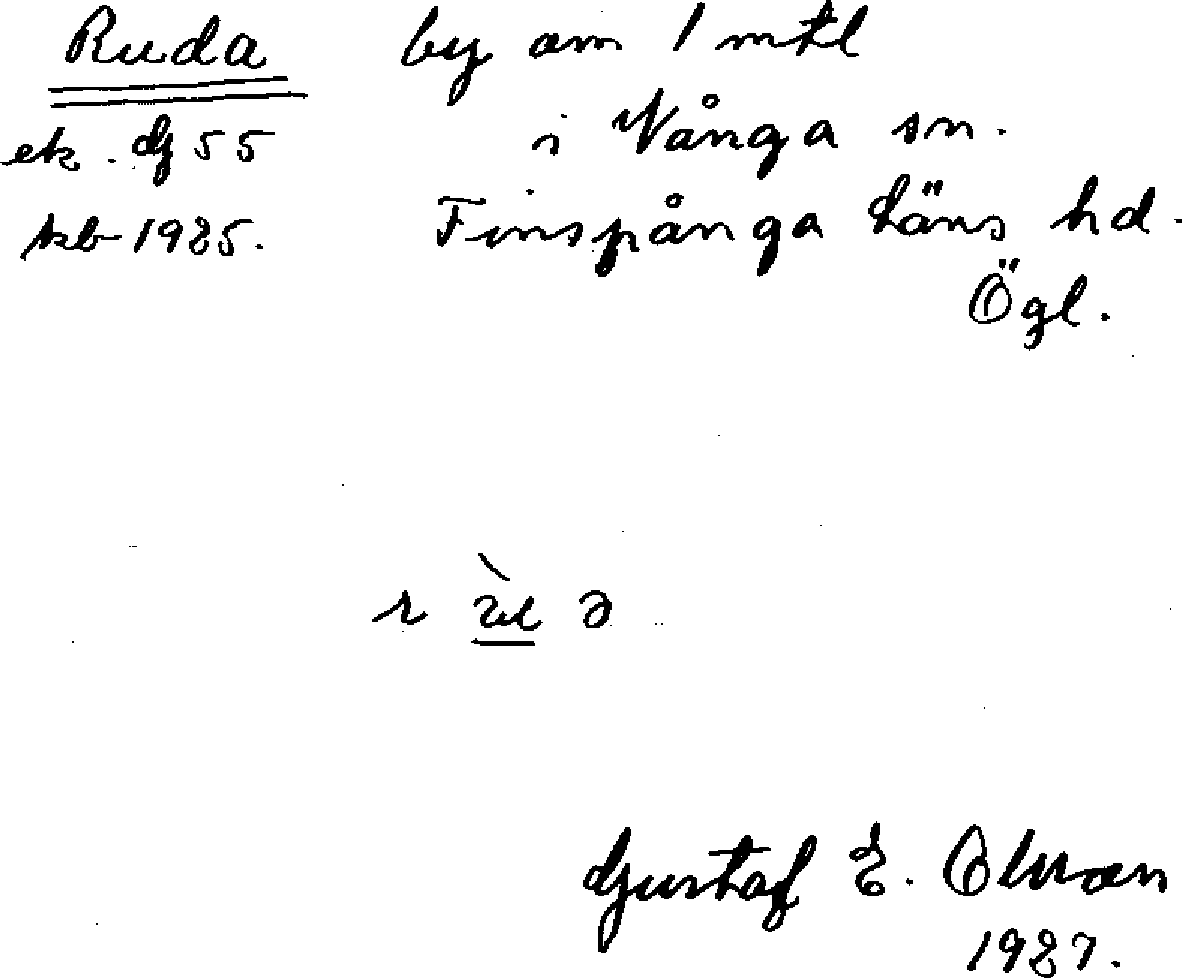 Ruda by om 1 mtl
ek. dj 55 i Vånga sn.
kb 1925. Finspånga läns hd.
Ögl.
Gustaf E. Olsson
1927.